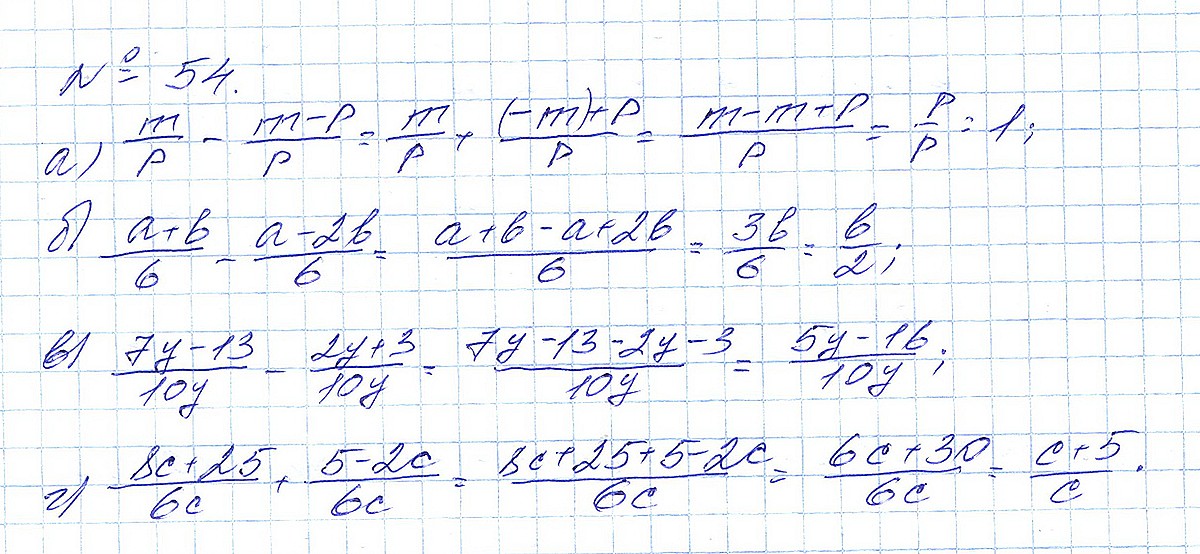 № 54.
а) m/p - m-p/p = m/p + (-m)+p/p = m-m+p/p = p/p = 1;
б) a+b/6 - a-2b/6 = a+b-a+2b/6 = 3b/6 = b/2;
в) 7y-13/10y - 2y+3/10y = 7y-13-2y-3/10y = 5y-16/10y;
г) 8c+25/6c + 5-2c/6c = 8c+25+5-2c/6c = 6c+30/6c = c+5/c.